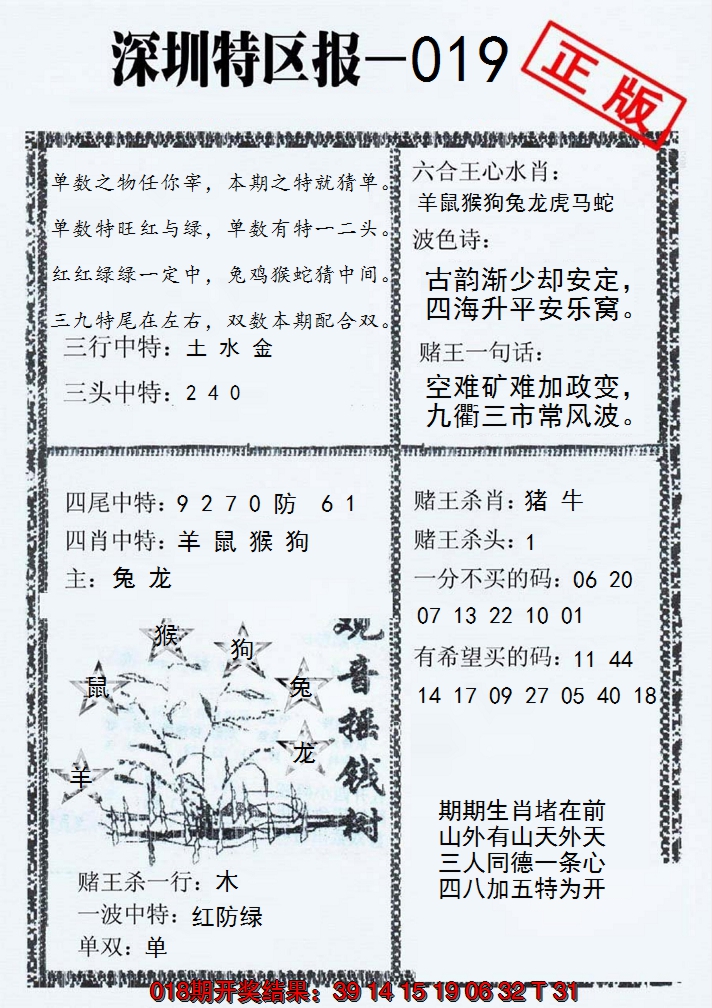 深圳特区报—019
正版
单数之物任你宰，本期之特就猜单。
单数特旺红与绿，单数有特一二头。
红红绿绿一定中，兔鸡猴蛇猜中间。
三九特尾在左右，双数本期配合双。
三行中特：土 水 金
三头中特：2 4 0
六合王心水肖：
羊鼠猴狗兔龙虎马蛇
波色诗：
古韵渐少却安定，
四海升平安乐窝。
赌王一句话：
空难矿难加政变，
九衢三市常风波。
四尾中特：9 2 7 0 防 6 1
四肖中特：羊 鼠 猴 狗
主：兔 龙
猴
狗
鼠
兔
龙
羊
观音摇钱树
赌王杀一行：木
一波中特：红防绿
单双：单
赌王杀肖：猪 牛
赌王杀头：1
一分不买的码：06 20
07 13 22 10 01
有希望买的码：11 44
14 17 09 27 05 40 18
期期生肖堵在前
山外有山天外天
三人同德一条心
四八加五特为开
018期开奖结果：39 14 15 19 06 32 T 31